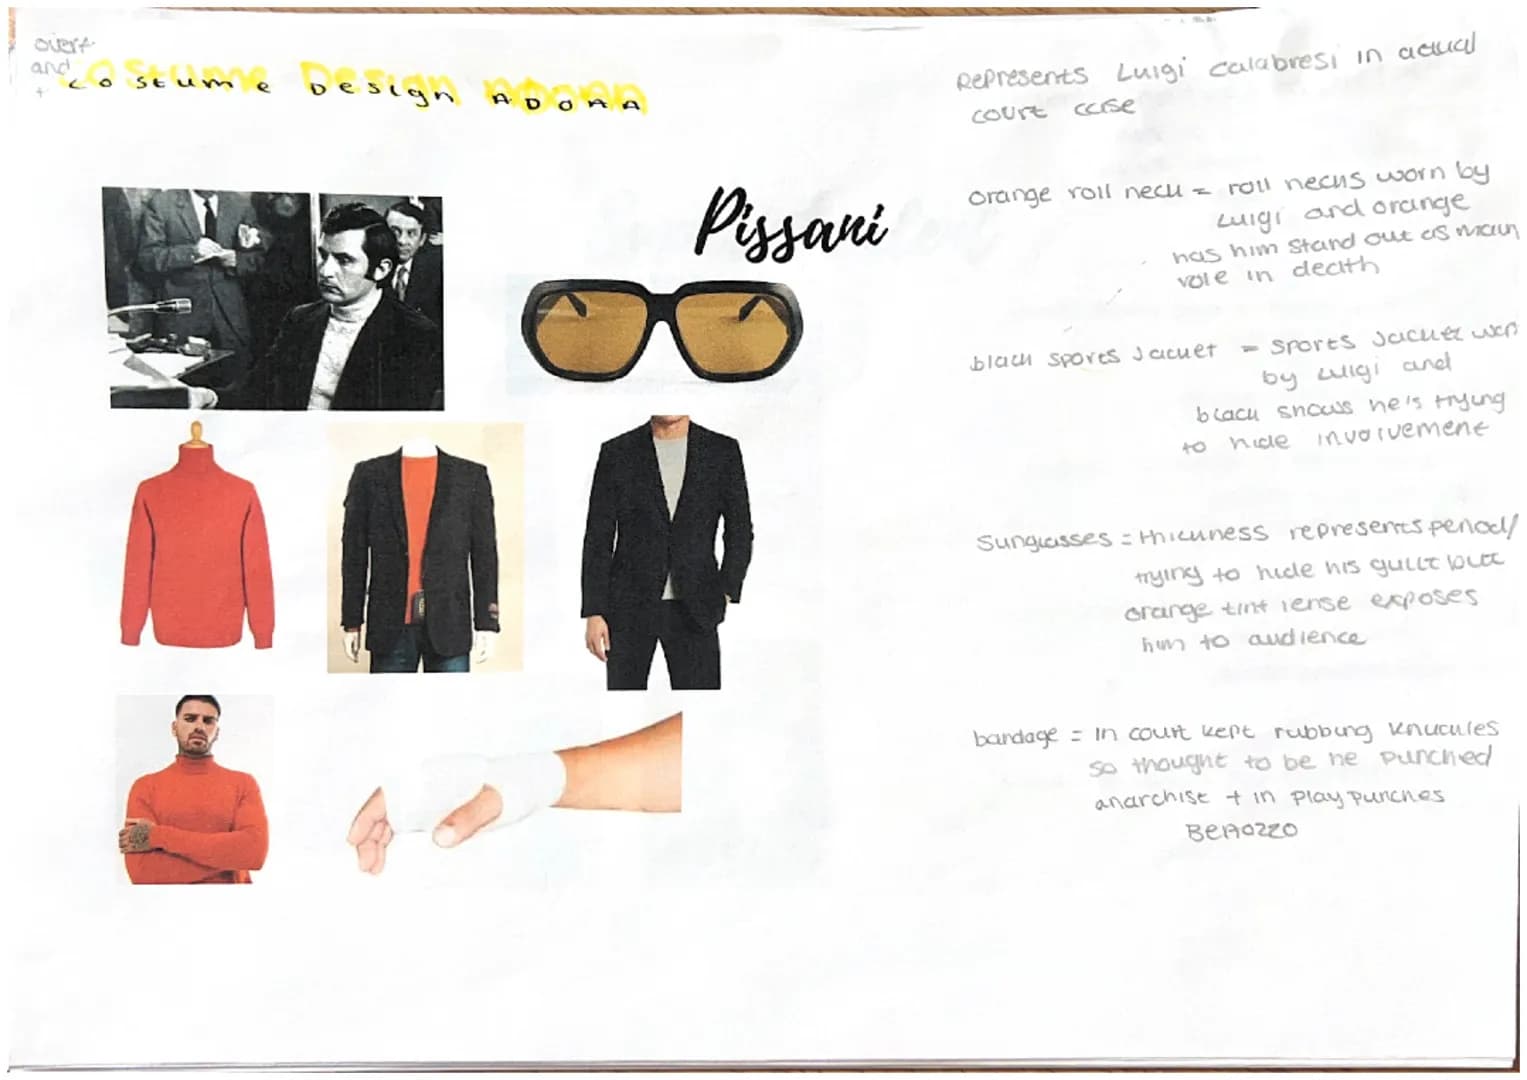 overt
and
+
Costume Design ADOAA
Pissani
Represents Luigi Calabresi in actual
court case
orange roll neck = roll necks worn by
Luigi and orange
has him stand out as main
role in death
black sports Jacket = sports Jacket worn
by Luigi and
black shows he's trying
to hide involvement
Sunglasses = thickness represents period/
trying to hide his guilt but
orange tint lense exposes
him to audience
bandage = in court kept rubbing knuckles
so thought to be he punched
anarchist + in play punches
Bertozzo